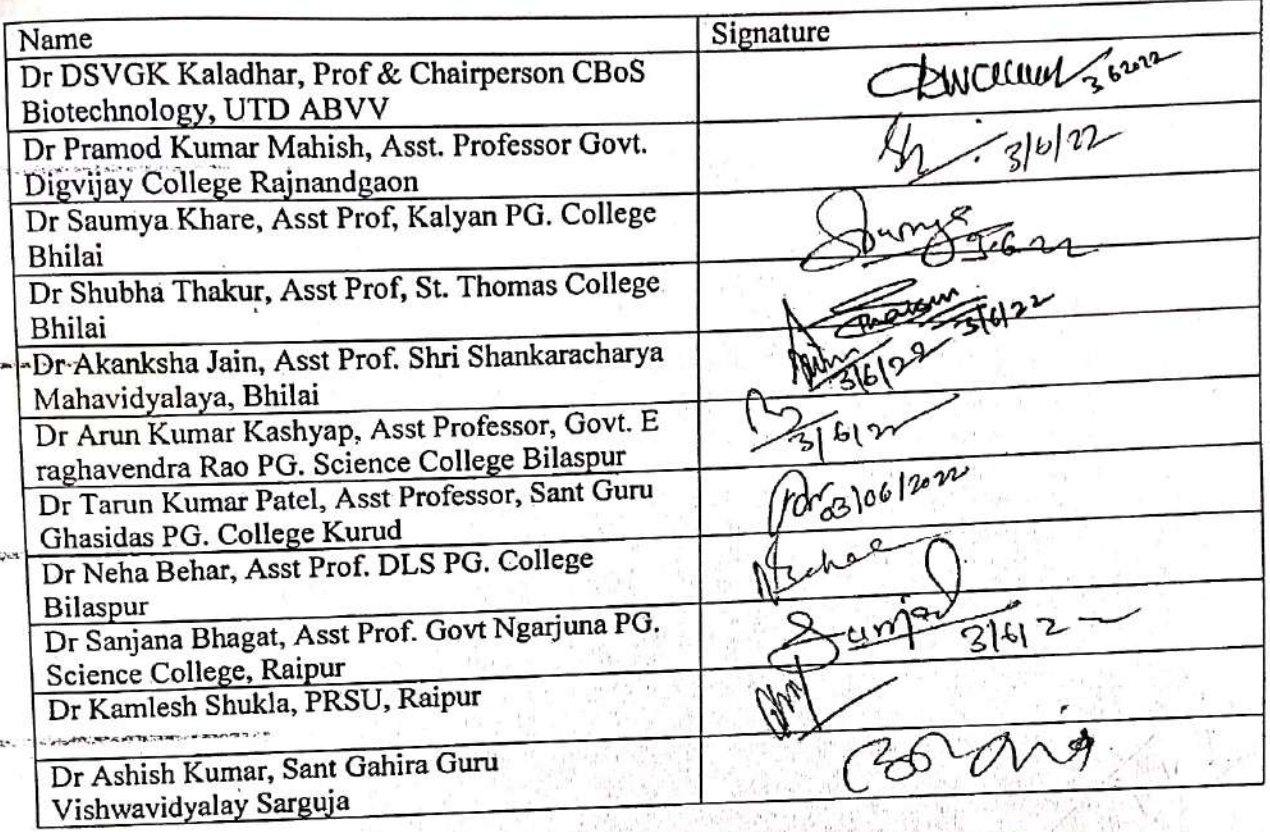 Name
Signature
Dr DSVGK Kaladhar, Prof & Chairperson CBoS
Biotechnology, UTD ABVV
3 6 2022
Dr Pramod Kumar Mahish, Asst. Professor Govt.
Digvijay College Rajnandgaon
3/6/22
Dr Saumya Khare, Asst Prof, Kalyan PG. College
Bhilai
3.6.22
Dr Shubha Thakur, Asst Prof, St. Thomas College
Bhilai
3/6/22
Dr Akanksha Jain, Asst Prof. Shri Shankaracharya
Mahavidyalaya, Bhilai
3/6/22
Dr Arun Kumar Kashyap, Asst Professor, Govt. E
raghavendra Rao PG. Science College Bilaspur
3/6/22
Dr Tarun Kumar Patel, Asst Professor, Sant Guru
Ghasidas PG. College Kurud
03/06/2022
Dr Neha Behar, Asst Prof. DLS PG. College
Bilaspur
Dr Sanjana Bhagat, Asst Prof. Govt Ngarjuna PG.
Science College, Raipur
3/6/2
Dr Kamlesh Shukla, PRSU, Raipur
Dr Ashish Kumar, Sant Gahira Guru
Vishwavidyalay Sarguja